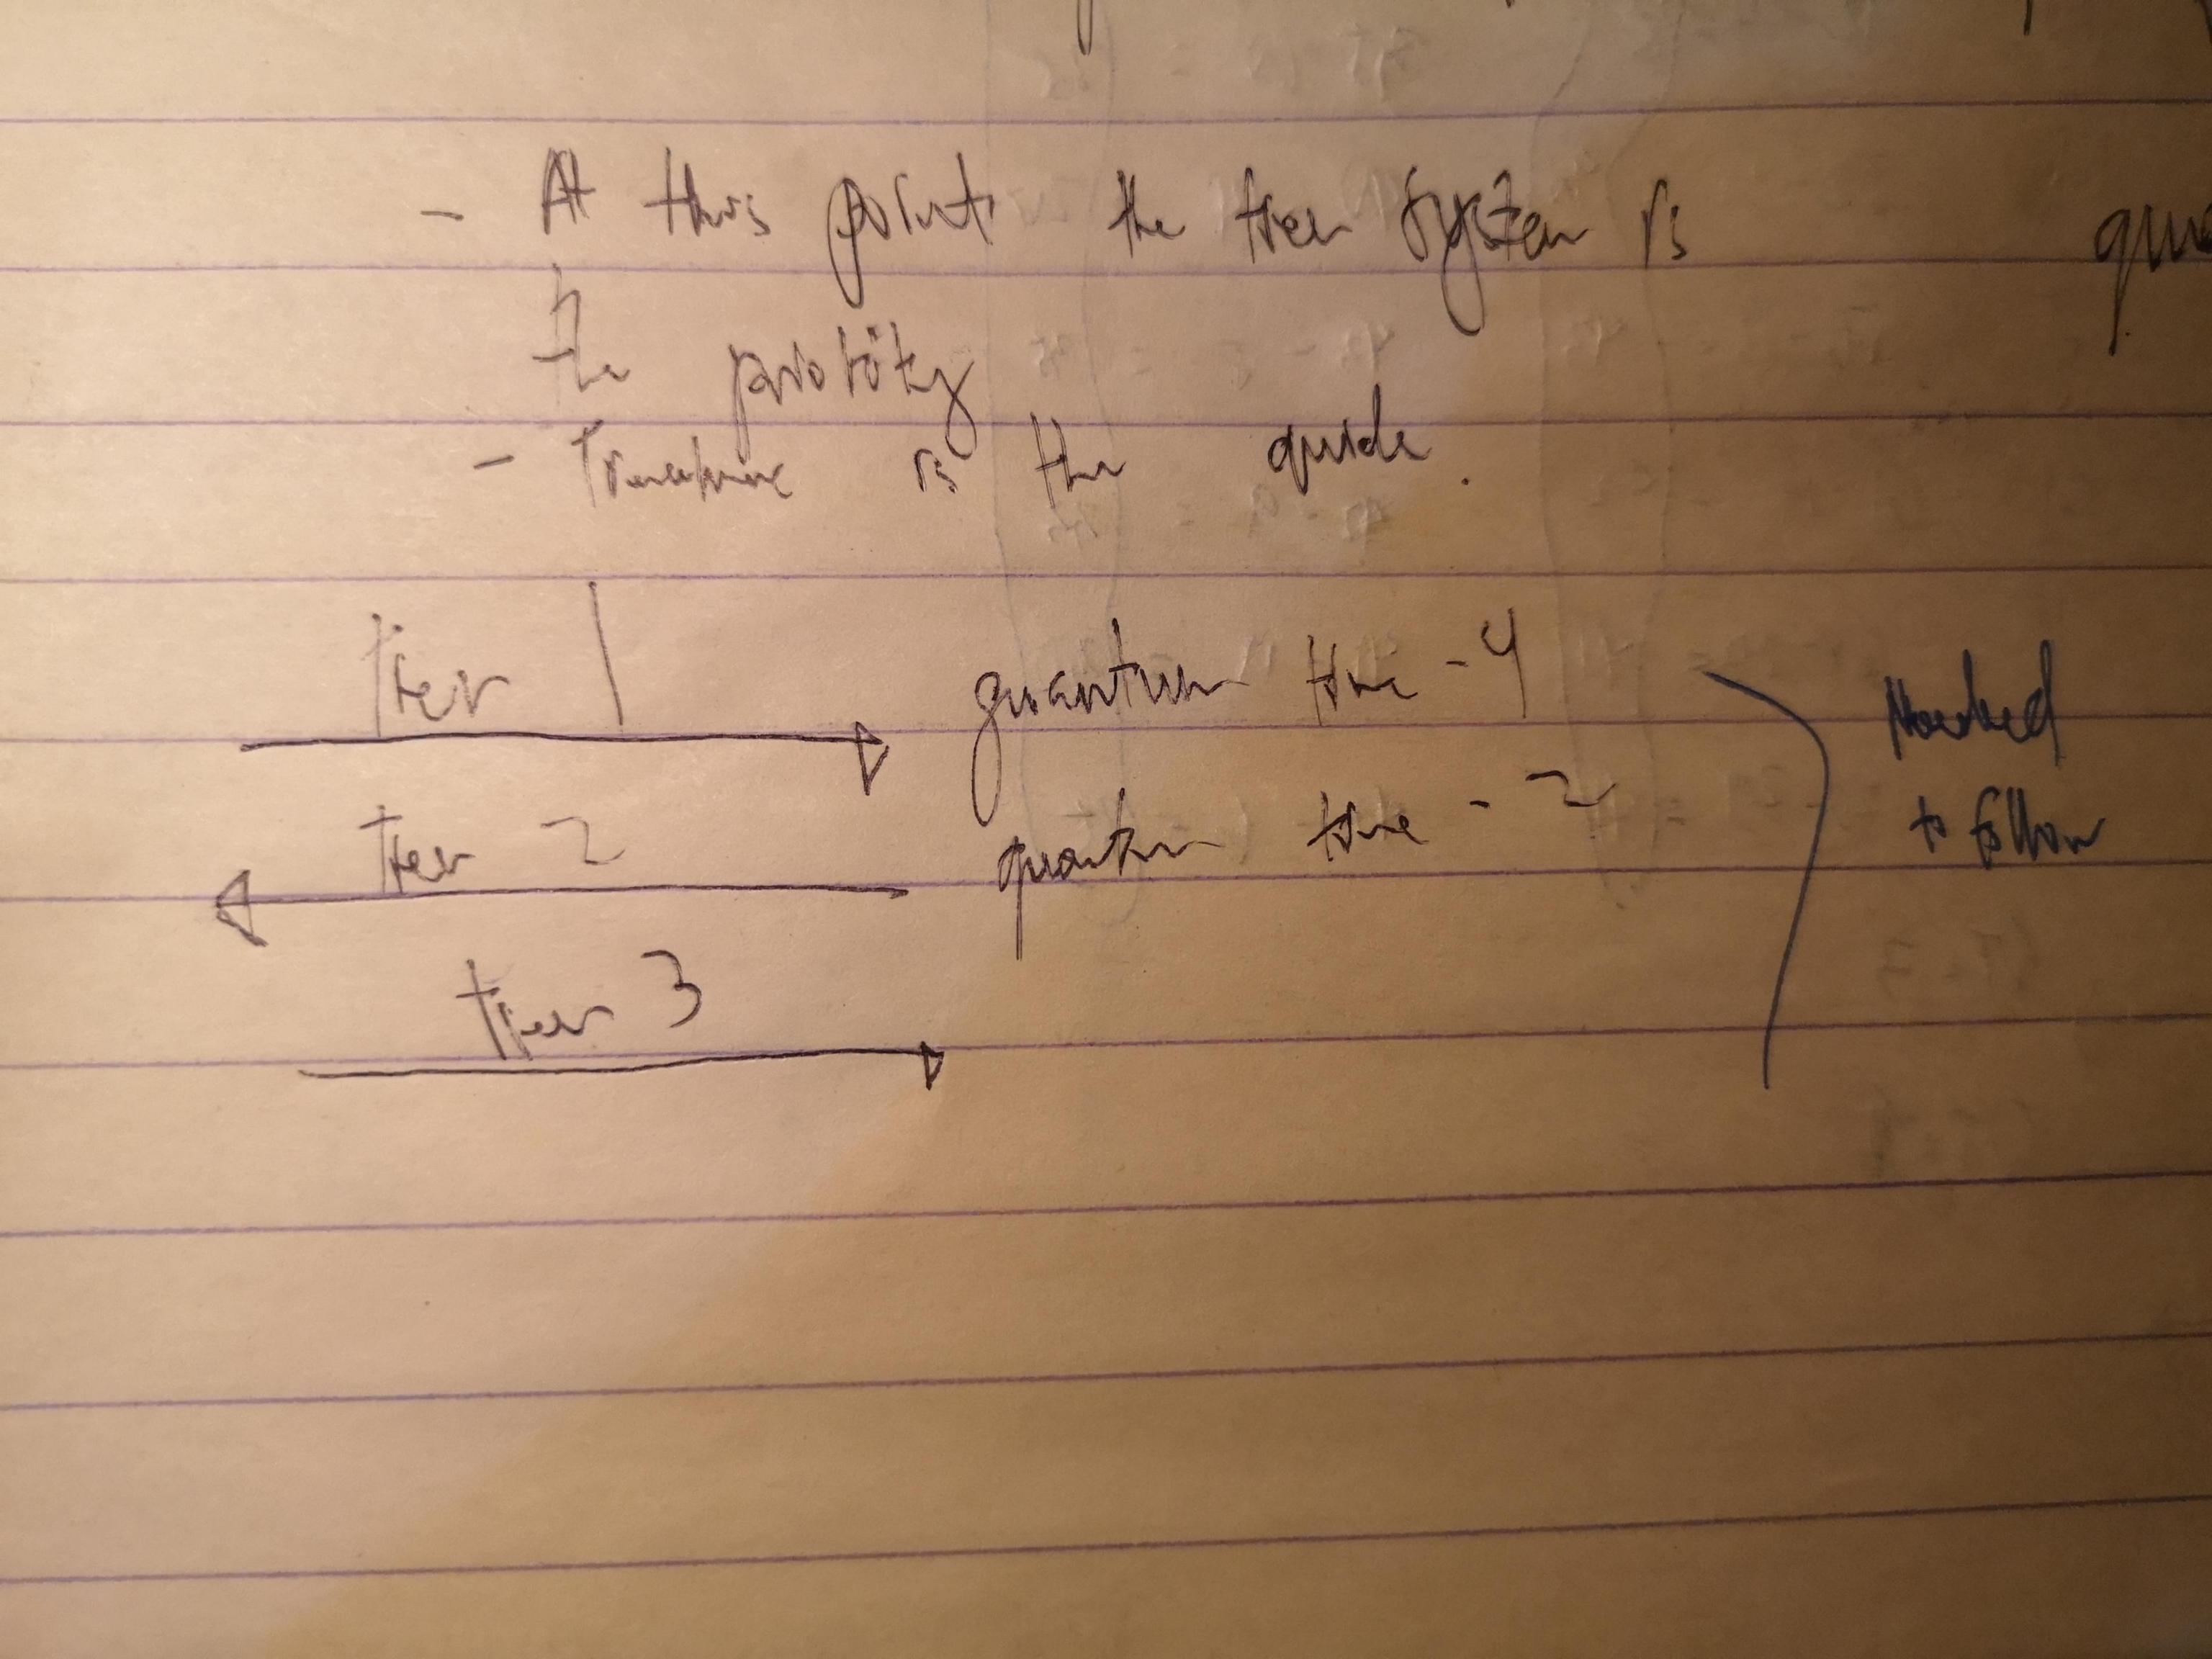 - At this point the tier system is
the priority
- is the guide.
Tier 1 quantum time - 4
Tier 2 quantum time - 2
Tier 3
to follow